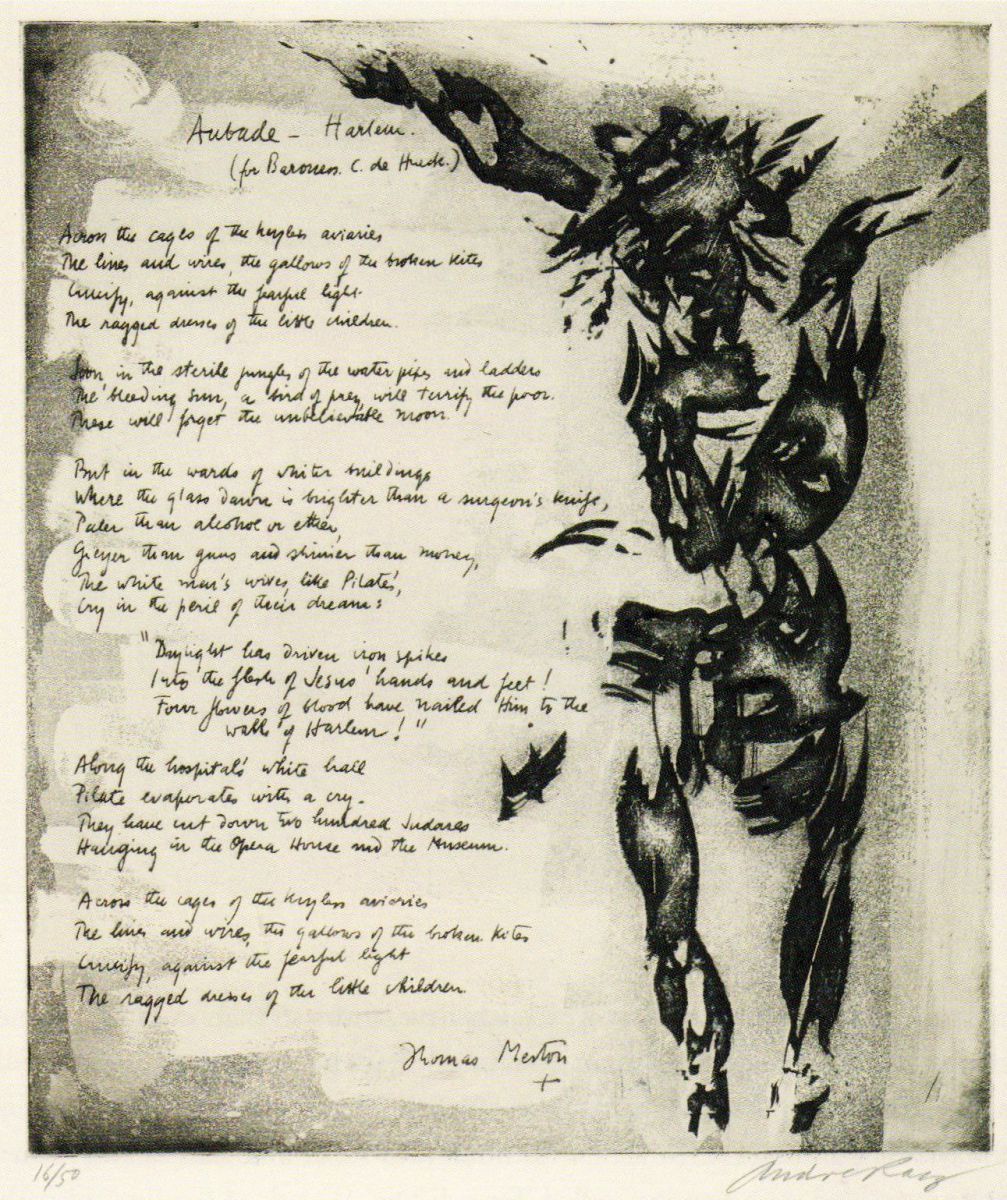 Aubade – Harlem.
(for Baroness. C. de Hueck.)
Across the cages of the keyless aviaries
The lines and wires, the gallows of the broken kites
Crucify, against the fearful light
The ragged dresses of the little children.
Soon, in the sterile jungles of the water pipes and ladders
The bleeding sun, a bird of prey, will terrify the poor.
These will forget the unbelievable moon.
But in the wards of whiter buildings
Where the glass dawn is brighter than a surgeon's knife,
Paler than alcohol or ether,
Greyer than guns and shinier than money,
The white men's wives, like Pilate's,
Cry in the peril of their dreams:
"Daylight has driven iron spikes
Into the flesh of Jesus' hands and feet!
Four flowers of blood have nailed Him to the
walls of Harlem!"
Along the hospital's white hall
Pilate evaporates with a cry.
They have cut down two hundred Judases
Hanging in the Opera House and the Museum.
Across the cages of the keyless aviaries
The lines and wires, the gallows of the broken kites
Crucify, against the fearful light
The ragged dresses of the little children.
Thomas Merton
+
16/50
André Racz